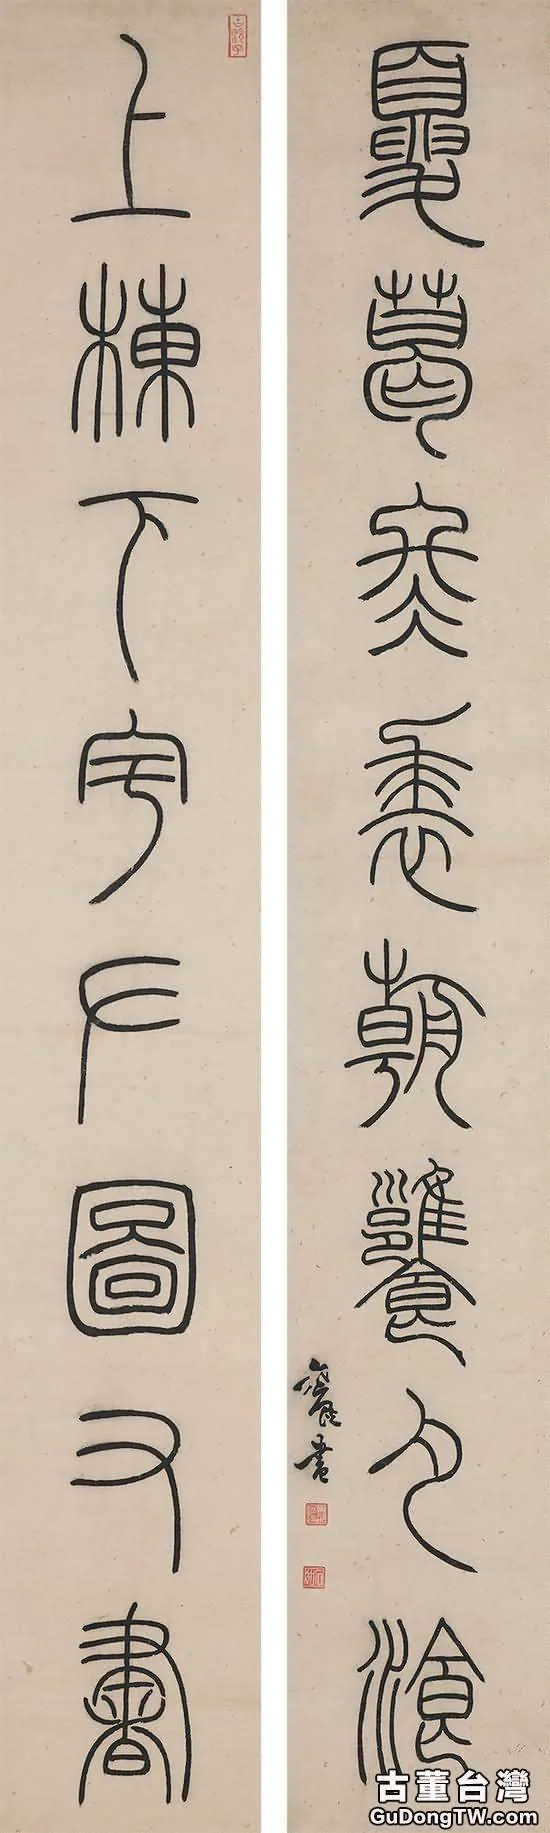 上棟下宇左圖右書
夏葛冬裘朝饔夕湌
書
古董台灣
GuDongTW.com